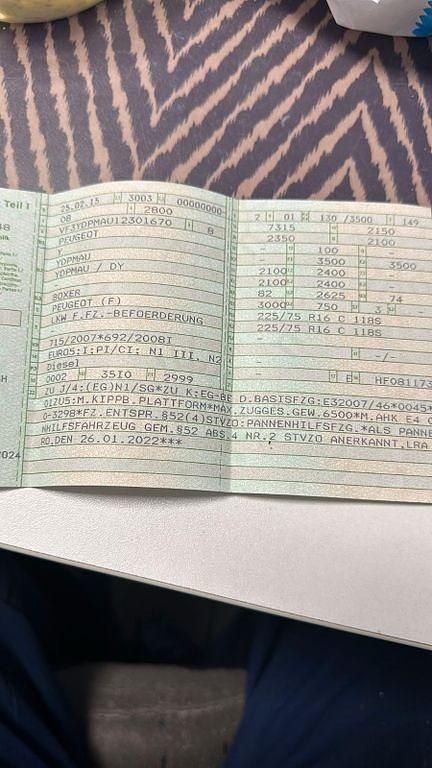 Teil 1
25.02.15 3003 00000000
08 2800
VF3YDPMAU12301670 8
PEUGEOT
YDPMAU
YDPMAU / DY
-
BOXER
PEUGEOT (F)
LKW F.FZ.-BEFOERDERUNG
-
715/2007*692/2008I
EURO5;I;PI/CI; N1 III, N2
Diesel
0002 35I0 2999
2 01 130 /3500 149
7315 2150
2350 2100
- 100 -
- 3500 3500
2100 2400 -
2100 2400 -
82 2625 74
3000 750 3
225/75 R16 C 118S
225/75 R16 C 118S
-
- -/-
- E HF081173
ZU J/4:(EG)N1/SG*ZU K:EG-BE D.BASISFZG:E32007/46*0045*
01ZU5:M.KIPPB.PLATTFORM*MAX.ZUGGES.GEW.6500*M.AHK E4
0-3298*FZ.ENTSPR.§52(4)STVZO:PANNENHILFSFZG.*ALS PANNE
NHILFSFAHRZEUG GEM.§52 ABS.4 NR.2 STVZO ANERKANNT,LRA
RO,DEN 26.01.2022***
2024